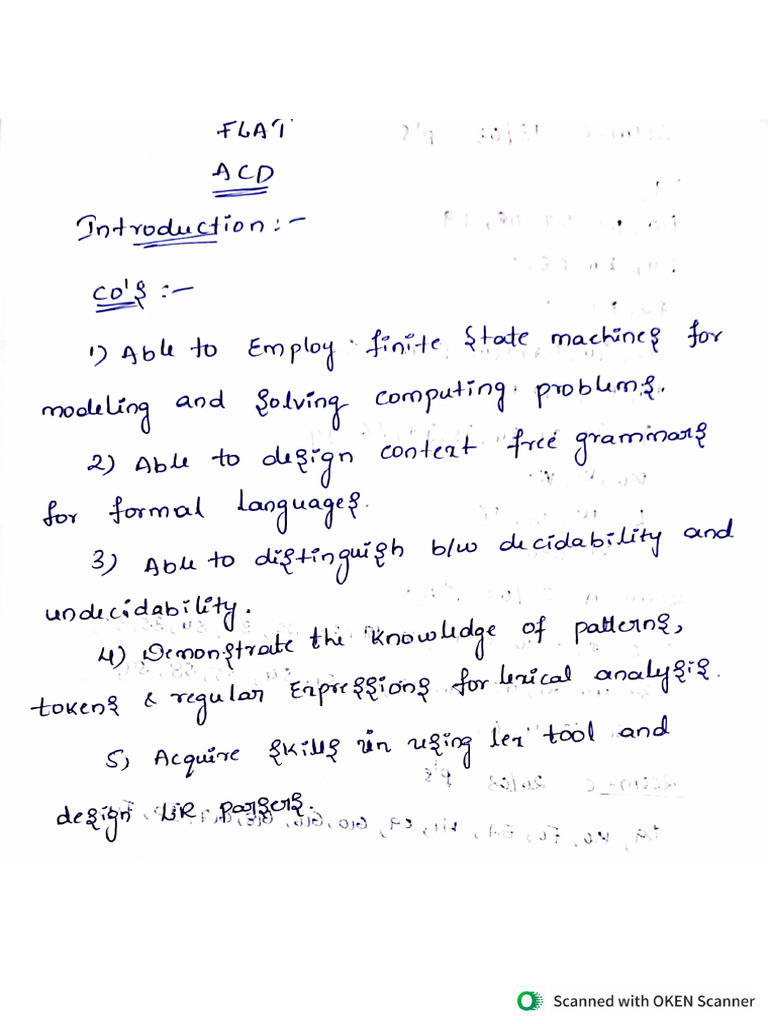 FLAT
ACD
Introduction:-
CO's :-
1) Able to Employ finite state machines for
modeling and solving computing problems.
2) Able to design context free grammars
for formal languages.
3) Able to distinguish b/w decidability and
undecidability.
4) Demonstrate the knowledge of patterns,
tokens & regular Expressions for lexical analysis.
5) Acquire skills in using lex tool and
design LR parsers.
Scanned with OKEN Scanner